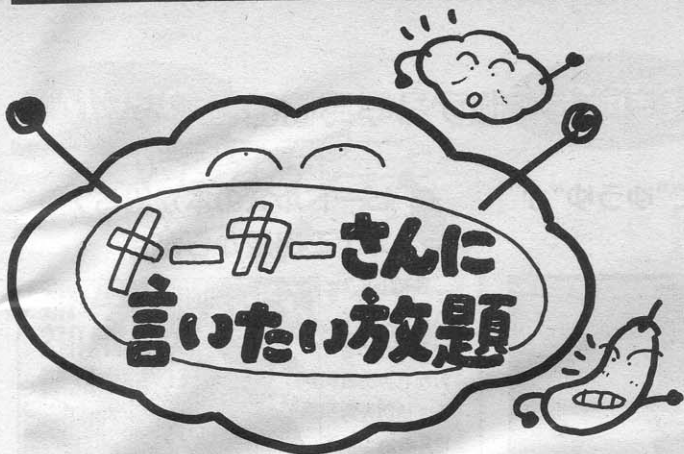 メーカーさんに
言いたい放題